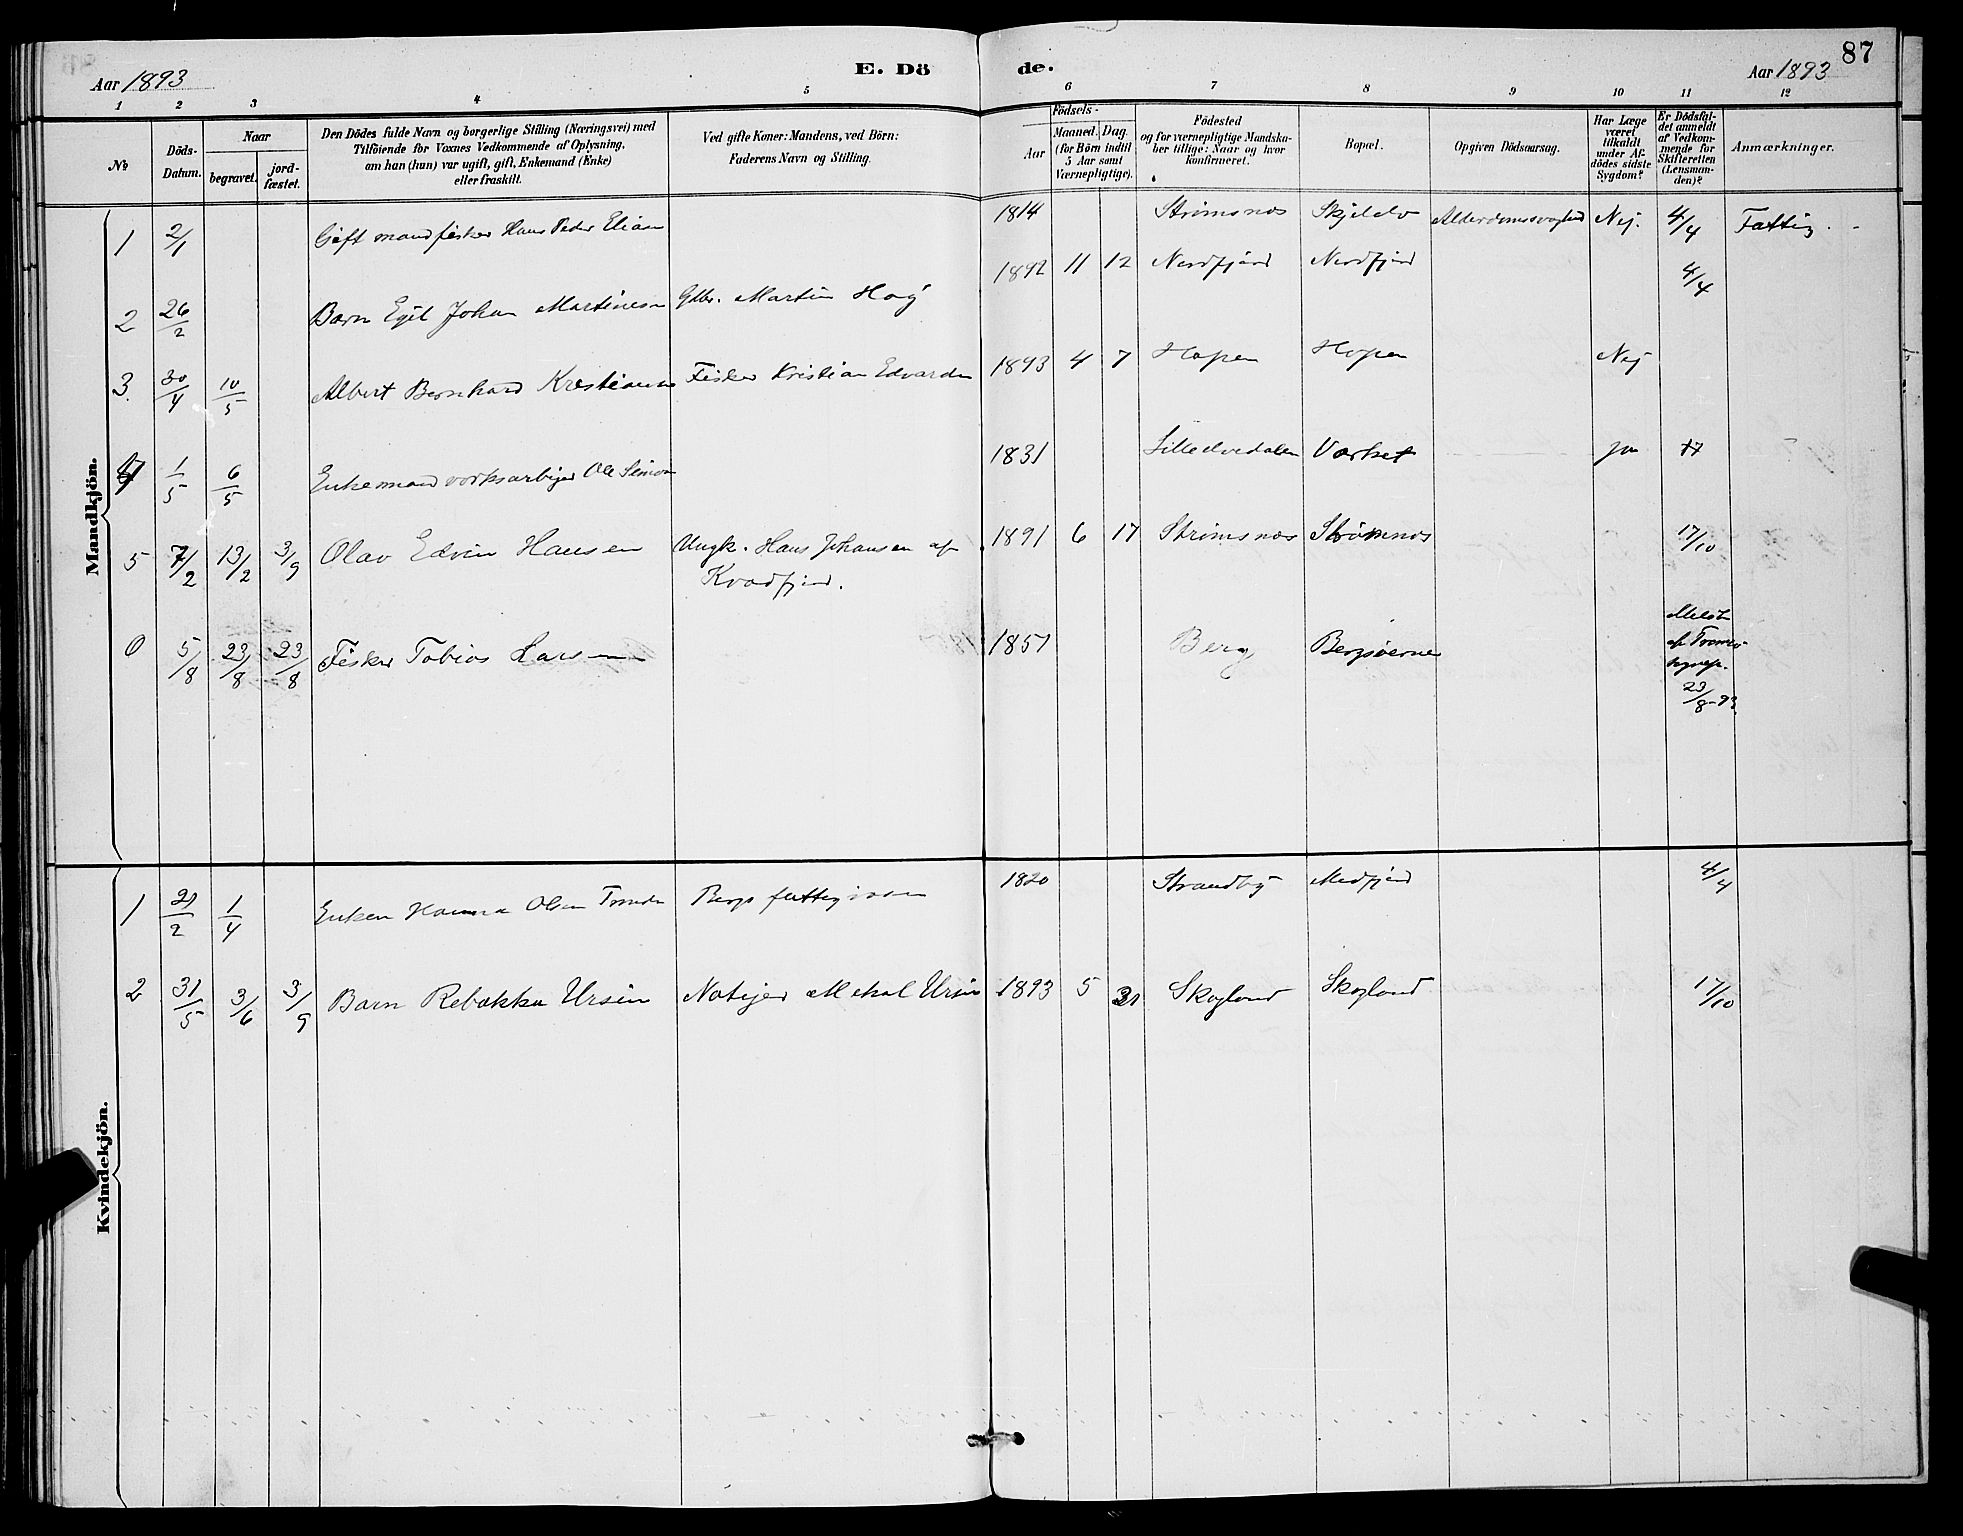 87
Aar 1893
E. Dö
de.
Aar 1893
1 2 3 4 5 6 7 8 9 10 11 12
№
Döds-
Datum.
Naar
begravet.
jord-
fæstet.
Den Dödes fulde Navn og borgerlige Stilling (Næringsvei) med
Tilföiende for Voxnes Vedkommende af Oplysning,
om han (hun) var ugift, gift, Enkemand (Enke)
eller fraskilt.
Ved gifte Koner: Mandens, ved Börn:
Faderens Navn og Stilling.
Födsels-
Aar
Maaned. Dag.
(for Börn indtil
5 Aar samt
Værnepligtige).
Födested
og for værnepligtige Mandska-
ber tillige: Naar og hvor
konfirmeret.
Bopæl.
Opgiven Dödsaarsag.
Har Læge
været
tilkaldt
under Af-
dödes sidste
Sygdom?
Er Dödsfal-
det anmeldt
af Vedkom-
mende for
Skifteretten
(Lensman-
den)?
Anmærkninger.
Mandkjön.
1 2/1 Gift mand fisker Hans Peder Eliasen 1814 Strömsnes Skjelelv Alderdomssvaghed Nej. 4/4 Fattig.
2 26/2 Barn Egil Johan Martinesen Gbr. Martin Hog 1892 11 12 Nordfjord Nordfjord 4/4
3. 30/4 10/5 Albert Bernhard Kristiansen Fisker Kristian Edvardsen 1893 4 7 Hopen Hopen Nej
4 1/5 6/5 Enkemand verksarbeider Ole Simon 1831 Lilleelvedalen Værket ja 17
5 7/2 13/2 3/9 Olav Edvin Hansen Ungk. Hans Johansen af 1891 6 17 Strömsnes Strömsnes 17/10
Kvædfjord.
0 5/8 23/8 23/8 Fisker Tobias Larsen 1851 Berg Bergsöerne Meldt
af Tromsö
23/8-93.
Kvindekjön.
1 21/2 1/4 Enken Hanna Olsen Berg fattigvæsen 1820 Strandby Medfjord 4/4
2 31/5 3/6 3/9 Barn Rebekka Ursin Mikal Ursin 1893 5 31 Skogland Skogland 17/10